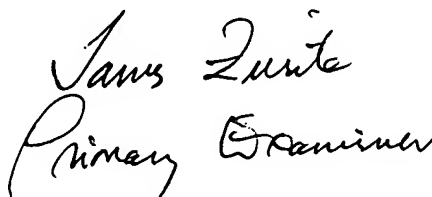 James Zurita
Primary Examiner